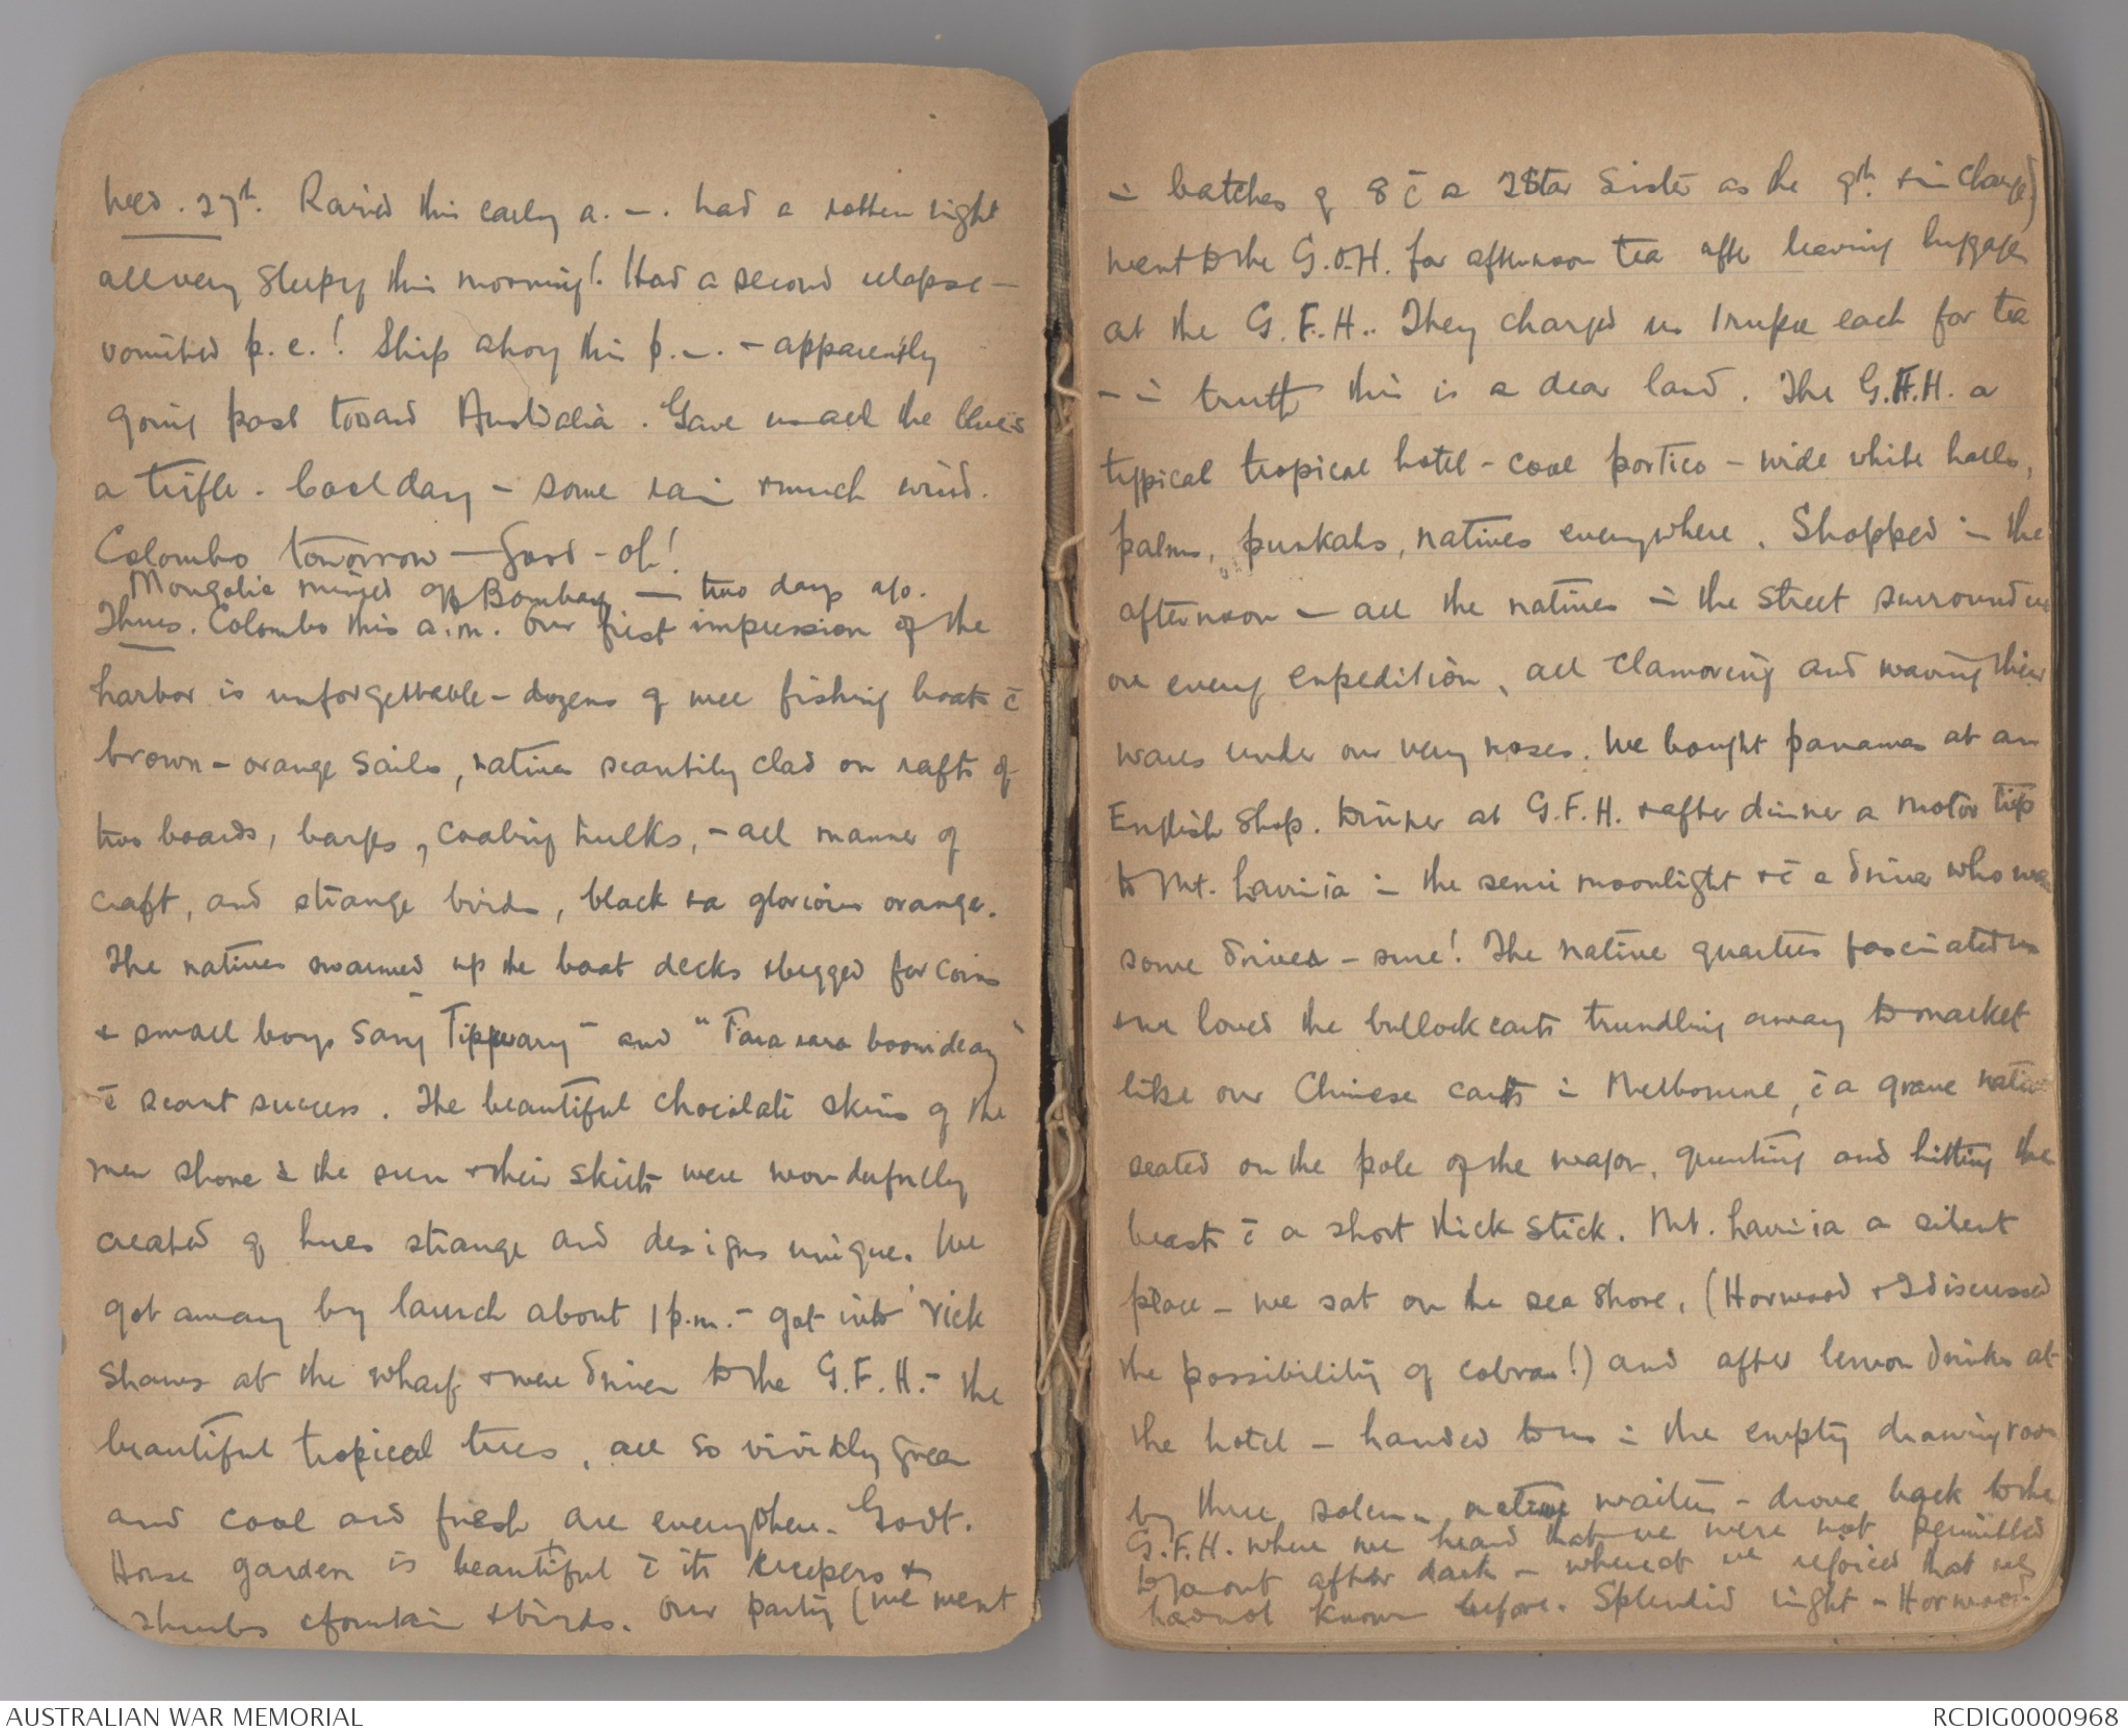 Wed. 27th. Rained this early a.m. had a rotten night
all very sleepy this morning! Had a second relapse -
vomited p.c.! Ship ahoy this p.m. - apparently
going past toward Australia. Gave us all the blues
a trifle. Cool day - some rain & much wind.
Colombo tomorrow - Good-oh!
Mongolia mined off Bombay - two days ago.
Thurs. Colombo this a.m. Our first impression of the
harbor is unforgettable - dozens of wee fishing boats c̄
brown-orange sails, natives scantily clad on rafts of
two boards, barges, coaling hulks, - all manner of
craft, and strange birds, black & a glorious orange.
The natives swarmed up the boat decks & begged for coins
& small boys sang Tipperary" and "Tara rara boomdeay"
c̄ scant success. The beautiful chocolate skins of the
men shone in the sun & their skirts were wonderfully
created of hues strange and designs unique. We
got away by launch about 1 p.m. - got into 'rick
shaws at the wharf & were driven to the G.F.H. - the
beautiful tropical trees, all so vividly green
and cool and fresh are everywhere. Govt.
House garden is beautiful c̄ its creepers &
shrubs & fountain & birds. Our party (we went
in batches of 8 c̄ a 2 Star Sister as the 9th & in charge)
went to the G.O.H. for afternoon tea after leaving luggage
at the G.F.H.. They charged us 1 rupee each for tea
- in truth this is a dear land. The G.F.H. a
typical tropical hotel - cool portico - wide white halls,
palms, punkahs, natives everywhere. Shopped in the
afternoon - all the natives in the street surround us
on every expedition, all clamoring and waving their
wares under our very noses. We bought panamas at an
English shop. Dinner at G.F.H. & after dinner a motor trip
to Mt. Lavinia in the semi moonlight & c̄ a driver who was
some driver - sure! The native quarters fascinated us
& we loved the bullock carts trundling away to market
like our Chinese carts in Melbourne, c̄ a grave native
seated on the pole of the wagon, grunting and hitting the
beasts c̄ a short thick stick. Mt. Lavinia a silent
place - we sat on the sea shore, (Horwood & I discussed
the possibility of cobras!) and after lemon drinks at
the hotel - handed to us in the empty drawing room
by three solemn native waiters - drove back to the
G.F.H. where we heard that we were not permitted
to go out after dark - whereat we rejoiced that we
had not known before. Splendid night - Horwood
AUSTRALIAN WAR MEMORIAL
RCDIG0000968